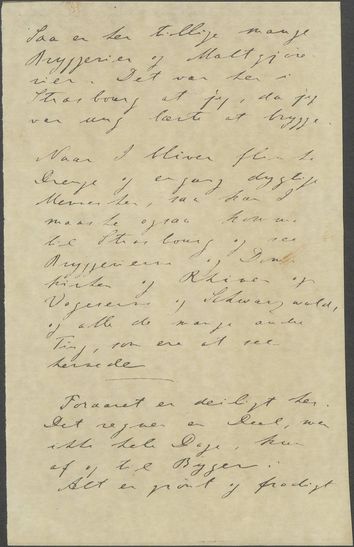 Saa er her tillige mange
Bryggerier og Maltgjöre
rier. Det var her i
Strasbourg at jeg, da jeg
var ung lærte at brygge.
Naar I bliver flinke
Drenge og engang dygtige
Mennesker, saa kan I
maaske ogsaa komme
til Strasbourg og see
Bryggerierne og Dom
kirken og Rhinen og
Vogeserne og Schwarzwald,
og alle de mange andre
Ting, som ere at see
hernede
Foraaret er deiligt her.
Det regner en Deel, men
ikke hele Dage, kun
af og til Byger.
Alt er grönt og frodigt